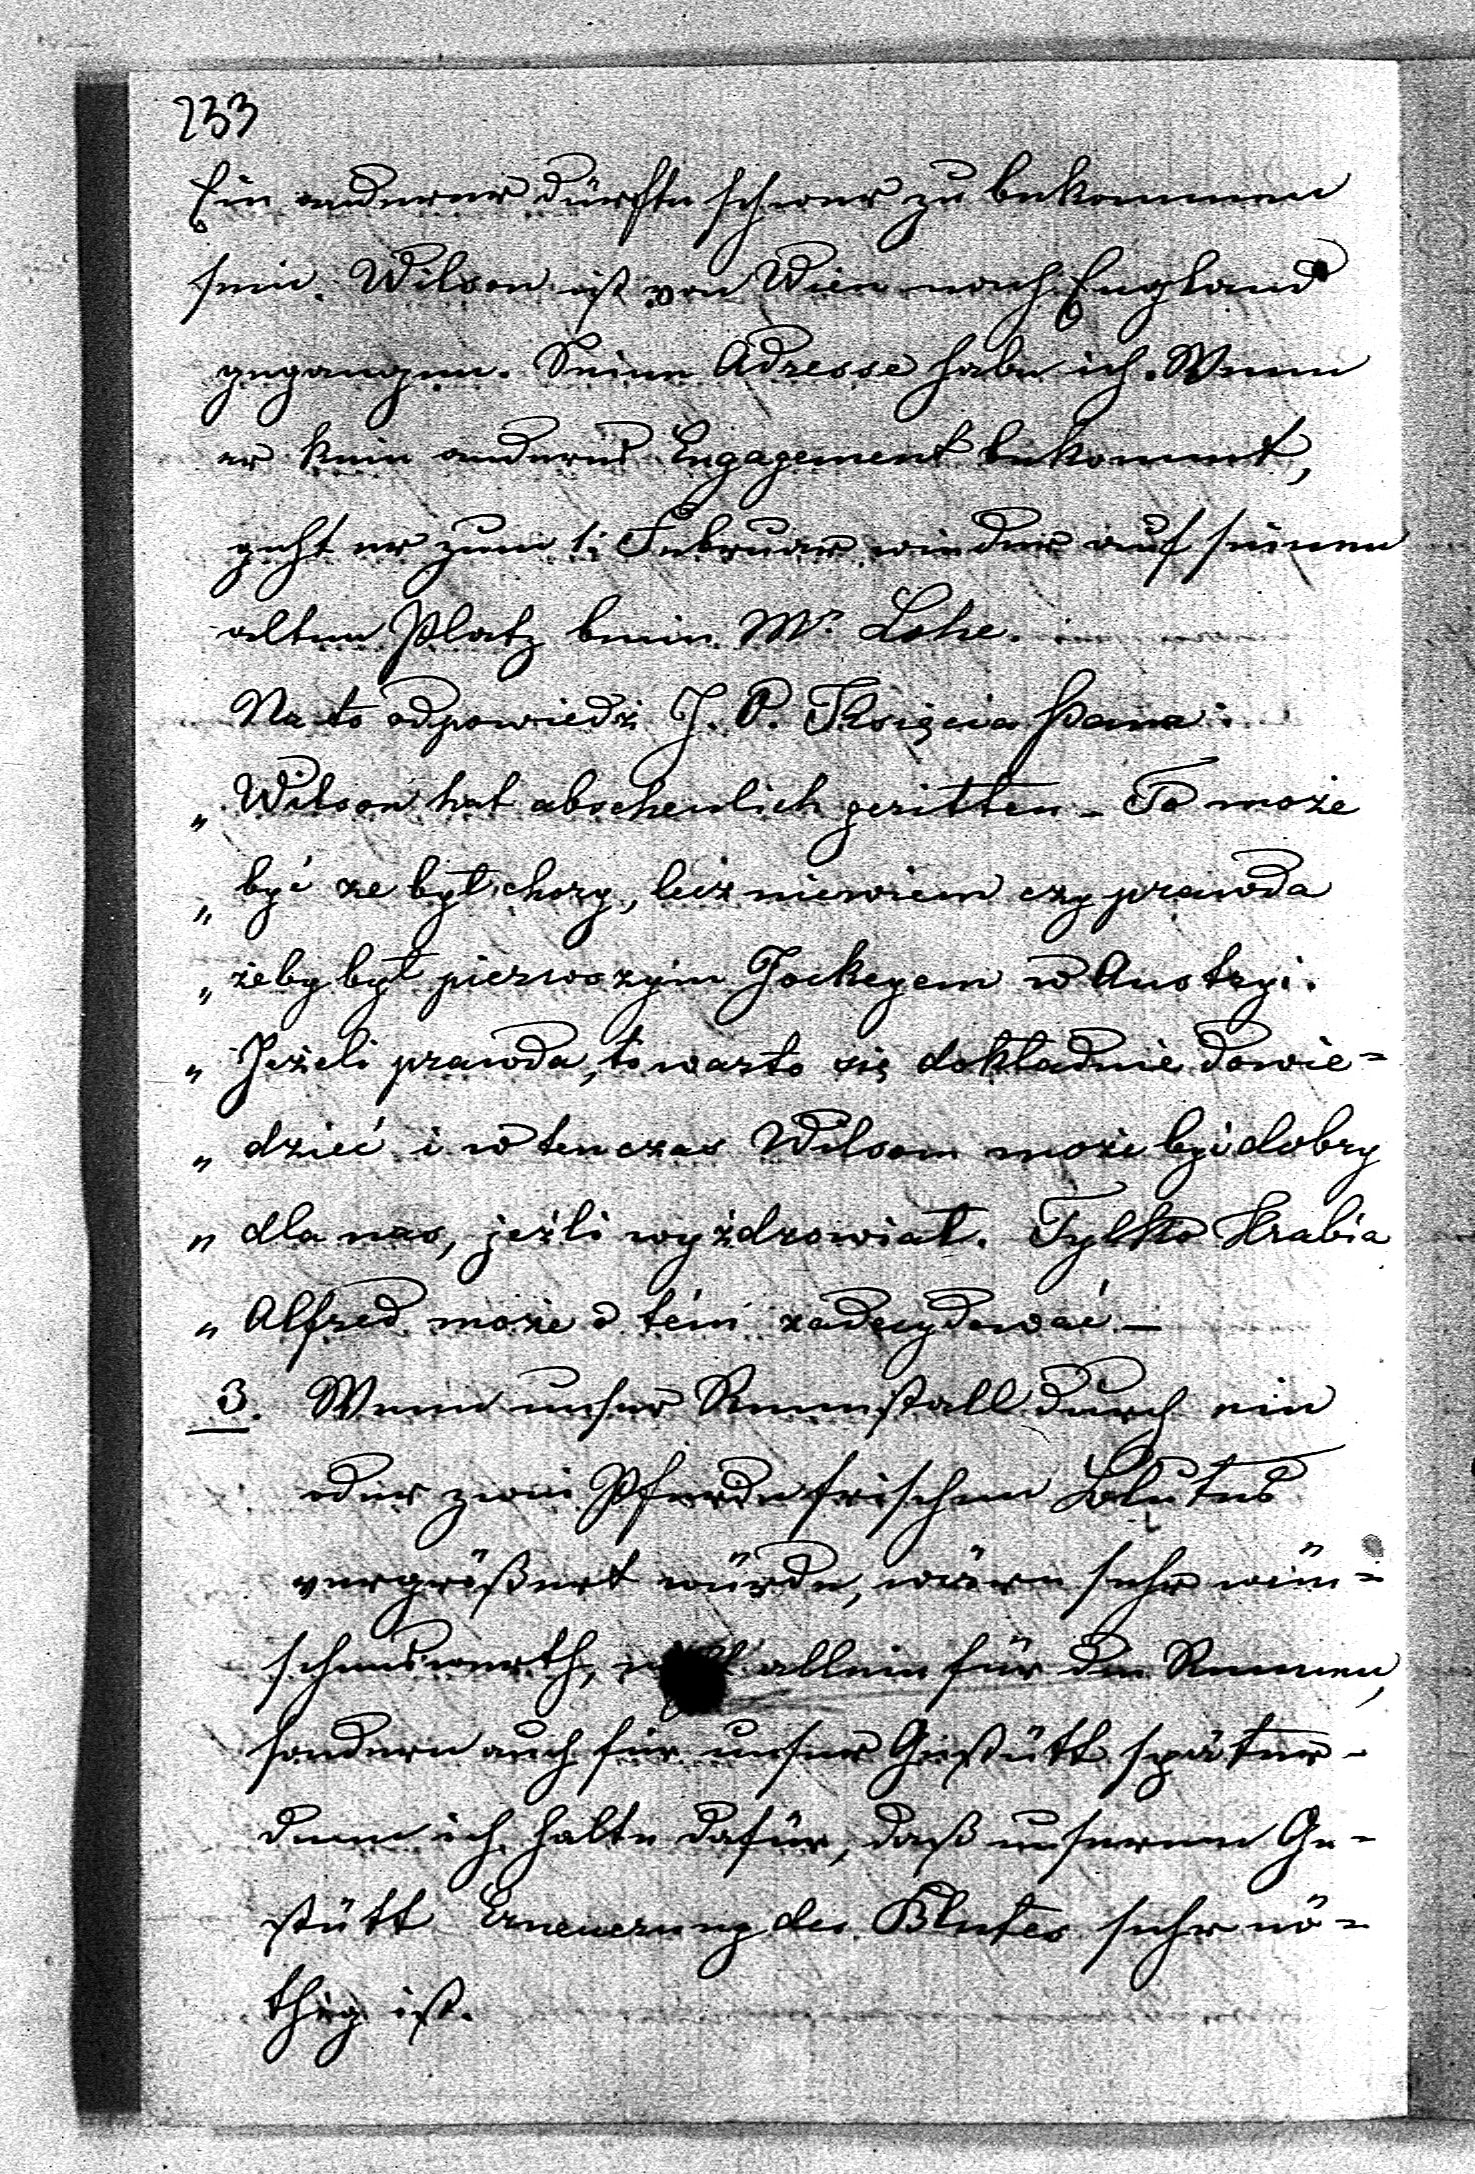 233
Ein anderer dürfte schwer zu bekommen
sein. Wilson ist von Wien nach England
gegangen. Seine Adresse habe ich. Wenn
er kein anderes Engagement bekommt,
geht er zum 1. Februar wieder auf seinen
alten Platz beim Mr. Lohe.
Na to odpowiedź J. O. Księcia Pana:
„ Wilson hat abscheulich geritten – To może
„ być że był chory, lecz niewiem czy prawda
„ żeby był pierwszym Jockeyem w Austryi.
„ Jeżeli prawda, to warto się dokładnie dowie=
„ dzieć i w tenczas Wilson może być dobry
„ dla nas, jeżli wyzdrowiał. Tylko Hrabia
„ Alfred może o tém zadecydować –
3. Wenn unser Rennstall durch ein
oder zwei Pferde frischen Blutes
vergrößert würde, wäre sehr wün=
schenswerth, allein für die Rennen,
sondern auch für unser Gestütt später –
denn ich halte dafür, daß unserem Ge=
stütt Erneuerung des Blutes sehr nö=
thig ist.